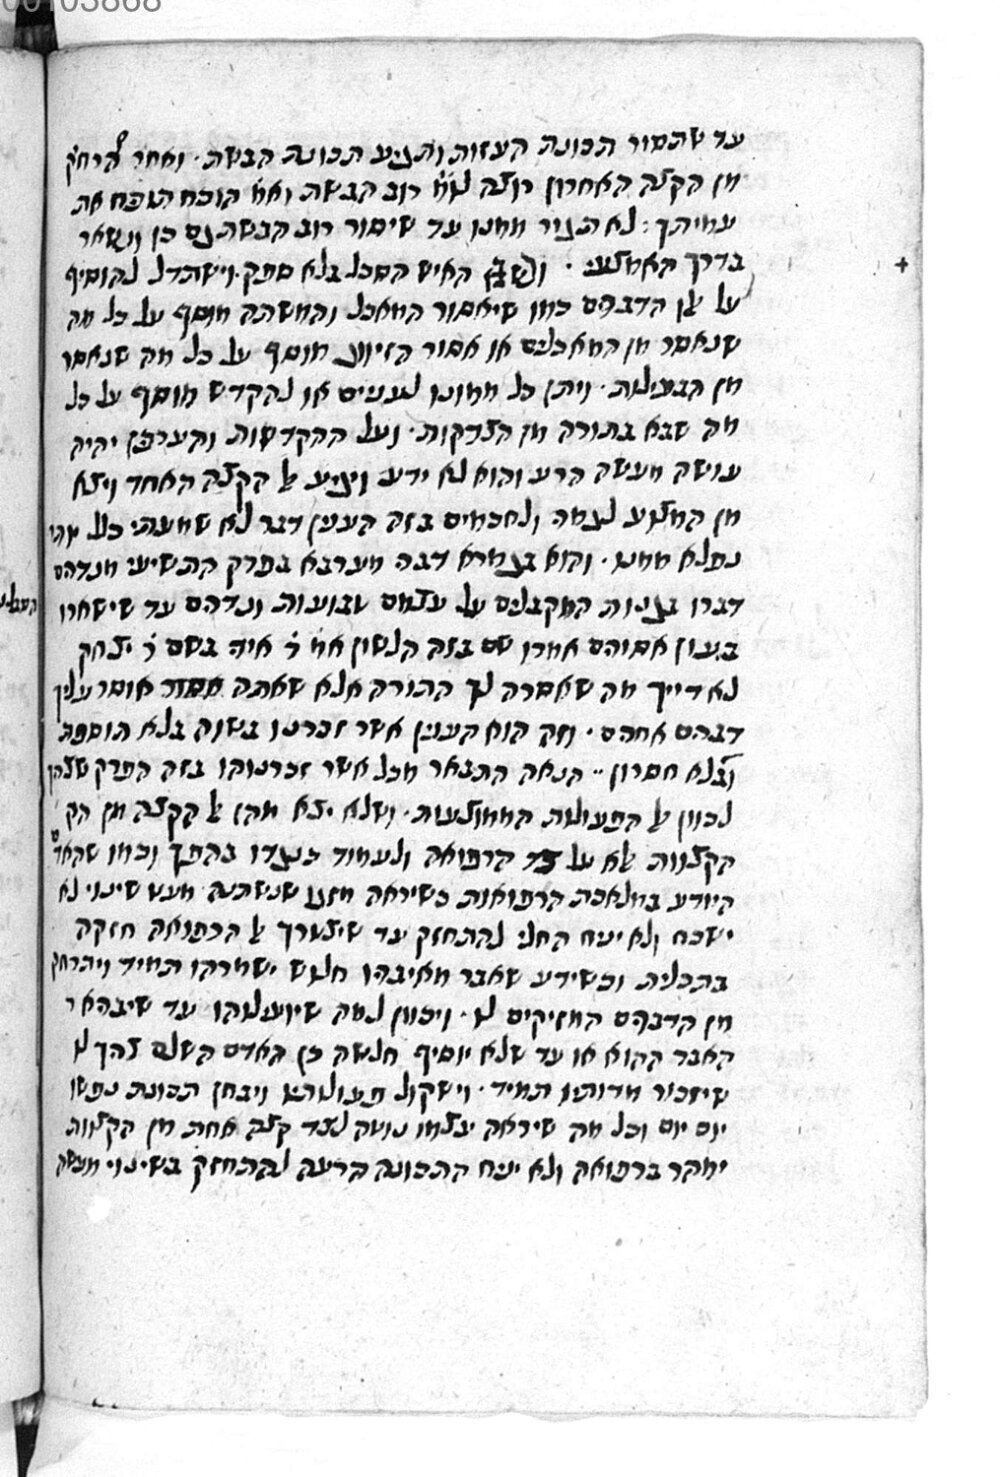 00103868
עד שתסור תכונת העזות ותגיע תכונת הבשת. ואחר הרחק
מן הקצה האחרון רוצה לו' רוב הבשת ואמ' הוכח תוכח את
עמיתך: לא תגור ממנו עד שיסור רוב הבשת גם כן וישאר
בדרך האמצעי. האיש הסכל בלא ספק. וישתדל להוסיף
על אלו הדברים כמו שיאסור המאכל והמשתה מוסף על כל מה
שנאסר מן המאכלים או אסור הזיווג מוסף על כל מה שנאסר
מן הבעילות. ויתן כל ממונו לעניים או להקדש מוסף על כל
מה שבא בתורה מן הצדקות. ועל ההקדשות והערכין יהיה
עושה מעשה הרע והוא לא ידע ויגיע אל הקצה האחד ויצא
מן המצוע לגמרי ולחכמים בזה הענין דבר לא שמעתי כלל יותר
נפלא ממנו. והוא בגמרא דבה מערבא בפרק התשיעי מנדרים
דברו בגנות המקבלים על עצמם שבועות ונדרים עד שישארו
כעין אסורים אמרו שם בזה הלשון אמ' ר' אידי בשם ר' יצחק
לא דייך מה שאסרה לך התורה אלא שאתה אוסר עליך
דברים אחרים. וזה הוא הענין אשר זכרנו בשוה בלא תוספת
ובלא חסרון.. הנאה התבאר מכל אשר זכרנוהו בזה הפרק שצריך
לכוון אל הפעולות הממוצעות. ושלא יצא מהן אל הקצה מן הק
הקצוות אלא על צד הרפואה ולעמוד כנגדו בהפך וכמו שהאדם
היודע במלאכת הרפואות כשיראה מזגו שנשתנה מעט שינוי לא
ישכח ולא יניח החלי להתחזק עד שיצטרך אל הרפואה חזקה
בתכלית וכשידע שאבר מאיבריו חלוש ישמרהו תמיד ויתרחק
מן הדברים המזיקים לו. ויכוון למה שיועילהו עד שיבריא
האבר ההוא או עד שלא יוסיף חלשה כן האדם השלם צריך לו
שיזכור מדותיו תמיד. וישקול פעולותיו ויבחן תכונת נפשו
יום יום וכל מה שיראה עצמו נוטה לצד קצה אחת מן הקצוות
ימהר ברפואה ולא יניח התכונה הרעה להתחזק בשינוי מעשה